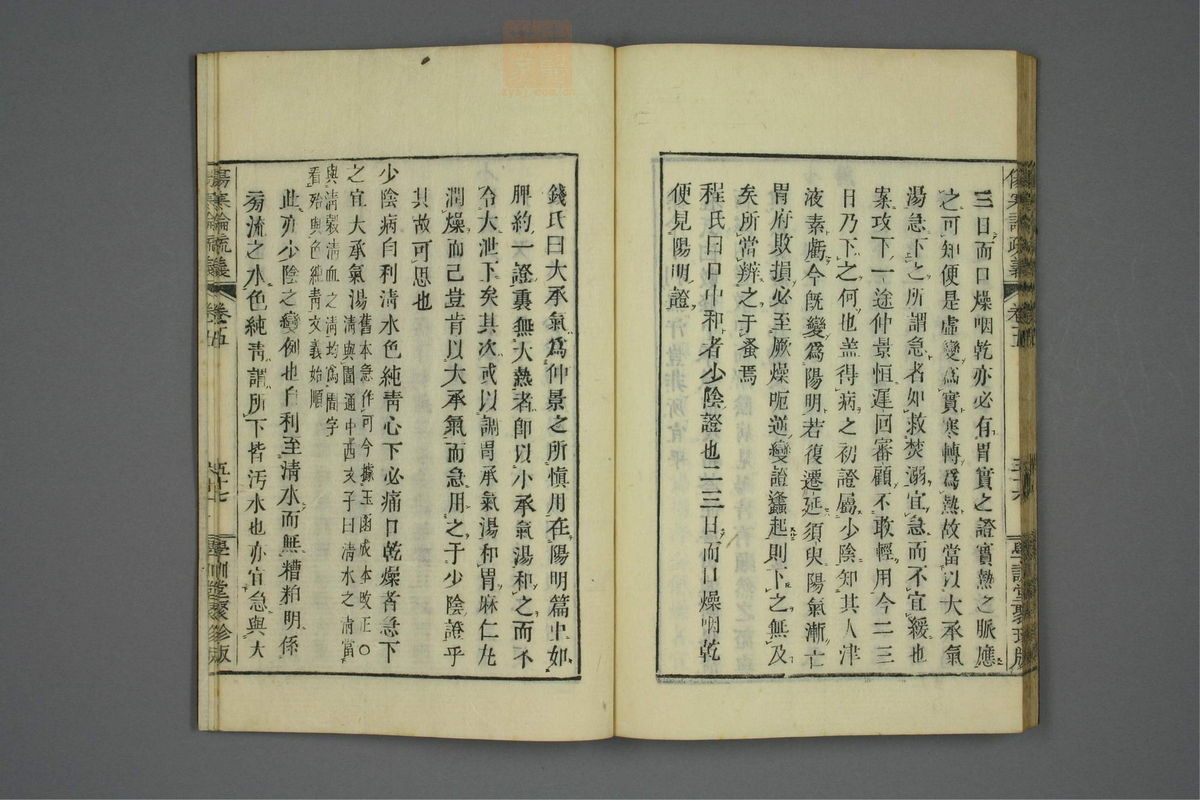 三日而口燥咽乾亦必有胃實之證實熱之脈應
之可知便是虛變爲實寒轉爲熱故當以大承氣
湯急下之所謂急者如救焚溺宜急而不宜緩也
案攻下一途仲景恒遲回審顧不敢輕用今二三
日乃下之何也盖得病之初證屬少陰知其人津
液素虧今旣變爲陽明若復遷延須臾陽氣漸亡
胃府敗損必至厥燥呃逆變證蠭起則下之無及
矣所當辨之于蚤焉
程氏曰口中和者少陰證也二三日而口燥咽乾
便見陽明證
錢氏曰大承氣爲仲景之所愼用在陽明篇中如
脾約一證裏無大熱者卽以小承氣湯和之而不
令大泄下矣其次或以調胃承氣湯和胃麻仁丸
潤燥而已豈肯以大承氣而急用之于少陰證乎
其故可思也
少陰病自利淸水色純靑心下必痛口乾燥者急下
之宜大承氣湯舊本急作可今據玉函成本改正〇
淸與圊通中西亥子曰淸水之淸當
與淸穀淸血之淸均爲圊字
看殆與色純靑文義始順
此亦少陰之變例也自利至淸水而無糟粕明係
旁流之水色純靑謂所下皆汚水也亦宜急與大
傷寒論疏義
卷五
五十七
學訓堂聚珍版